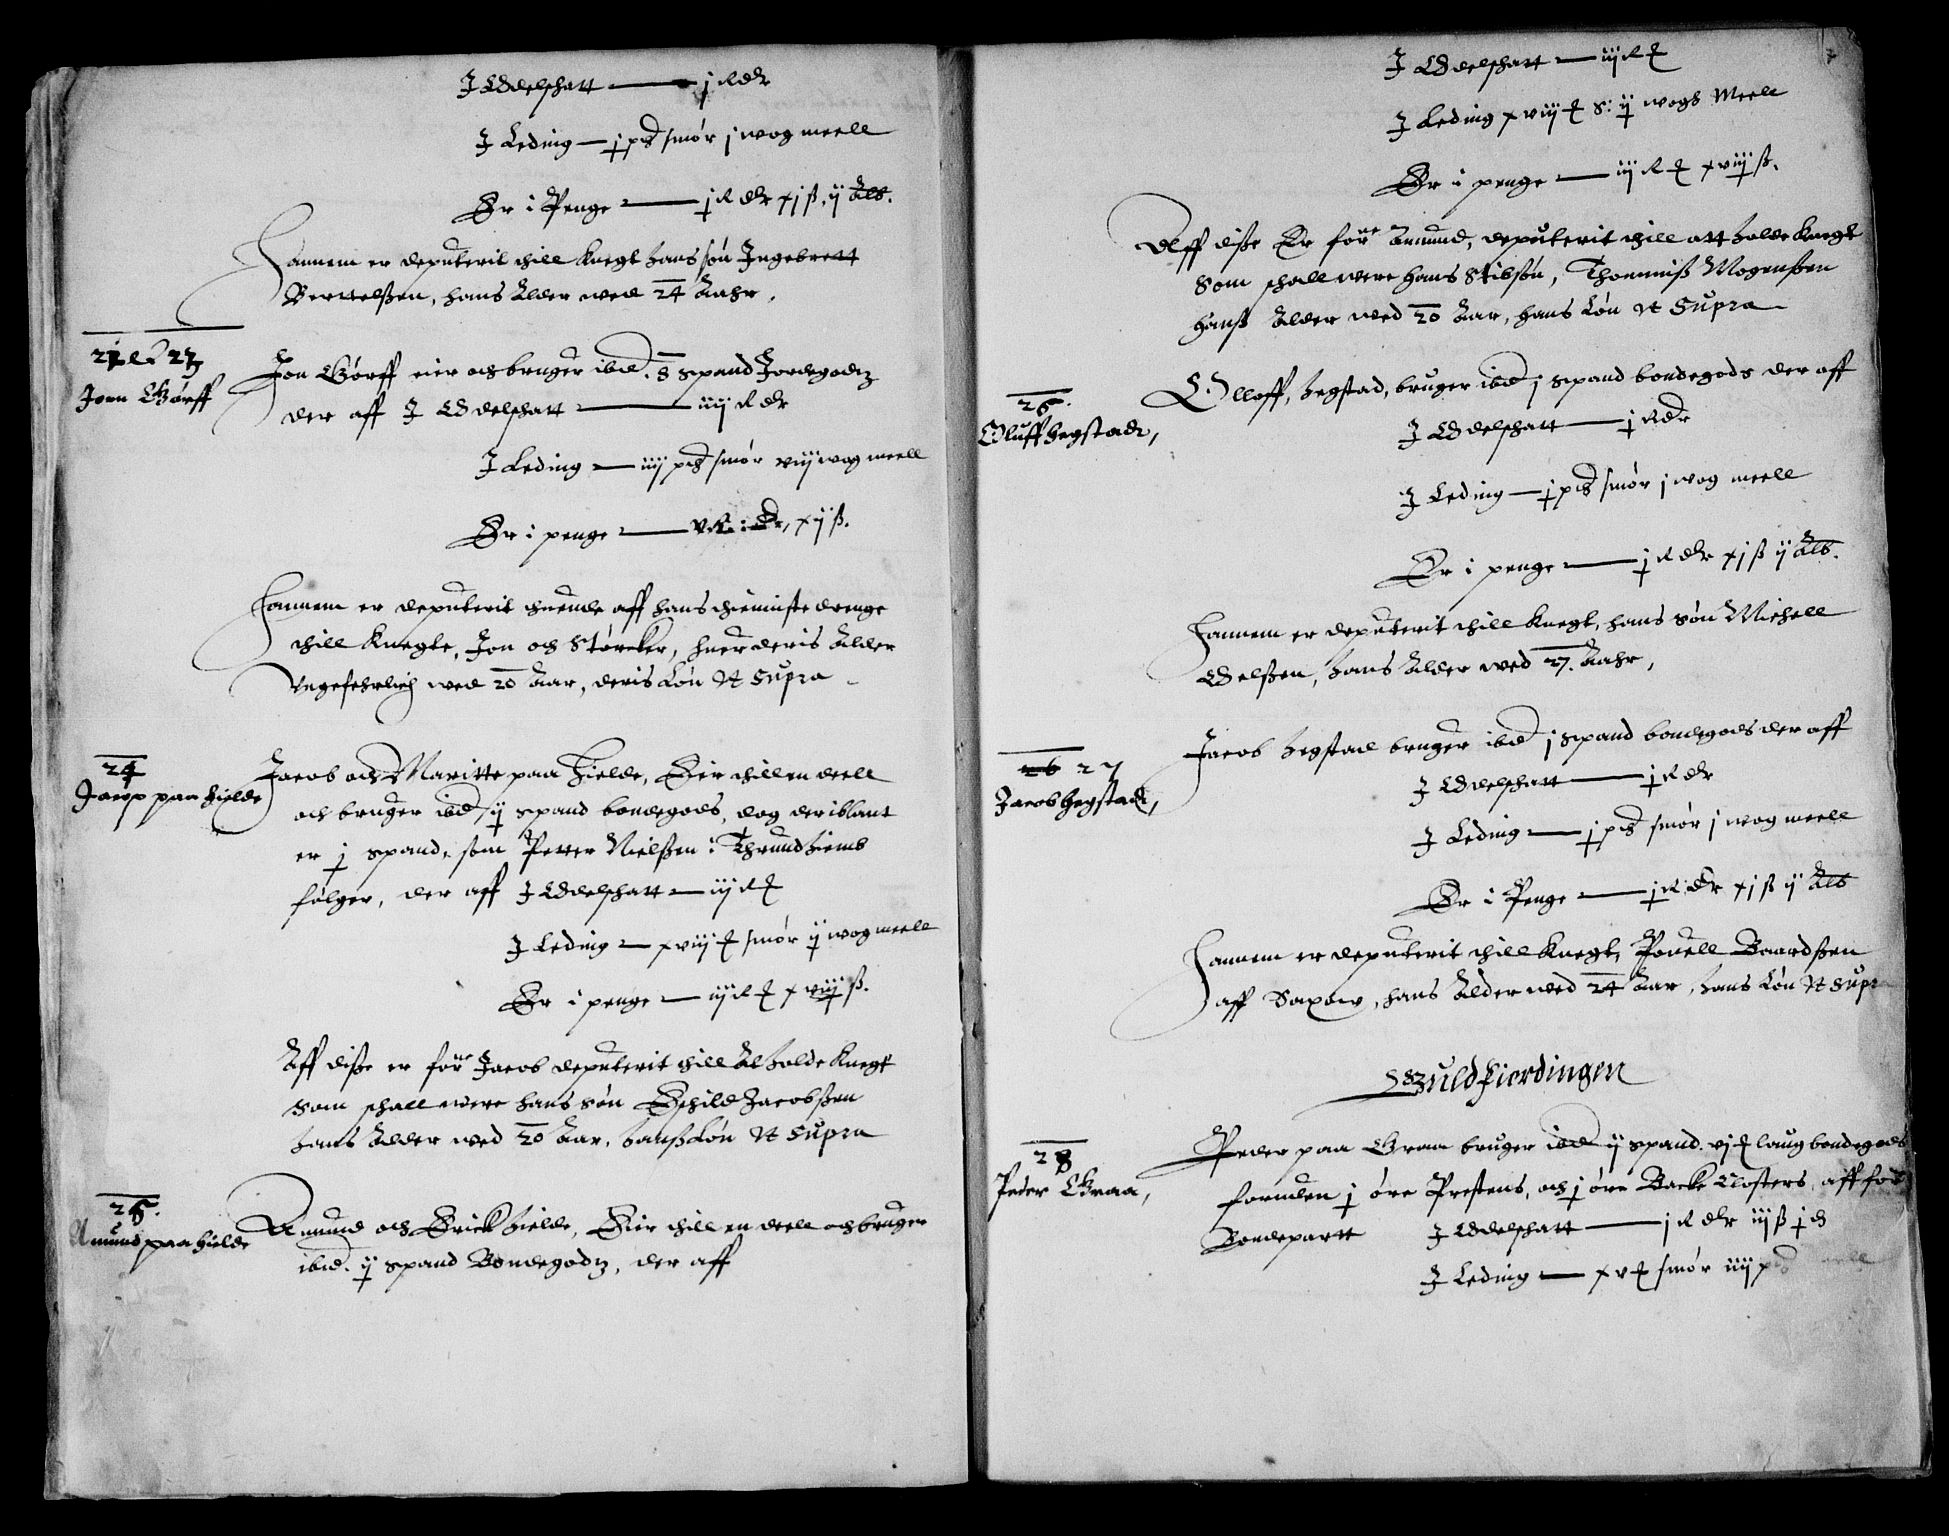 J Oddelschatt — j R dlr
J Leding — j pd smør j wog meell
Er i Penge — j R dlr xj ß, ij Alb.
Hannem er deputerit thill Knegt hans søn Ingebrett
Bertelßen, hans Alder wed 24 Aahr,
22 et 23
Jonn Børff
Jon Børff eier och bruger ibid. 8 spand Jordegodtz
der aff J Oddelschatt — iiij R dlr
J Leding — iiij pd smør viij wog meell
Er i penge — v R: dlr, xij ß.
Hannem er deputerit thuende aff hans thieniste drenge
thill Knegte, Jon och Størcker, huer deris Alder
Ungefehrlich wed 20 Aar, deris Løn Ut Supra
24
Jacop paa hielde
Jacob och Maritte paa Hielde, Eier thill en deell
och bruger ibid ij spand bondegods, dog der iblant
er j spand, som Petter Nielßen i Thrundhiemb
følger, der aff J Oddelschatt — iij R
J Leding — xviij smør ij wog meell
Er i penge — iij R xviij ß.
Aff diße er førne Jacob deputerit thill At holde Knegt
Som schall were hans Søn Eschild Jacobßen
hans Alder wed 20 Aar, hanß Løn Ut Supra
25.
Amund paa hielde
Amund och Erick hielde, Eier thill en deell och bruger
ibid. ij spand Bondegodtz, der aff
J Oddelschatt — iij R
J Leding xviij S: ij wogh Meell
Er i penge — iij R xviij ß.
Aff diße Er førne Amund, deputerit thill att holde Knegt
Som schall were hans Stibsøn, Thommiß Mogenßen
Hanß Alder wed 20 Aar, hans Løn Ut Supra
26.
Oluff hegstadt,
Olloff, hegstad, bruger ibid j spand bondegods der aff
J Oddelschatt — j R dlr
J Leding — j pd smør j wog meell
Er i penge — j R dlr xj ß ij Alb.
Hannem er deputerit thill Knegt, hans søn Michell
Oelßen, hans Alder wed 27. Aahr,
26 27
Jacob hegstadt,
Jacob hegstad bruger ibid j spand bondegods der aff
J Oddelschatt — j R dlr
J Leding — j pd smør j wog meell
Er i Penge — j R dlr xj ß ij Alb
Hannem er deputerit thill Knegt, Pouell Baardßen
aff Saxow, hans Alder wed 24 Aar, hans Løn Ut Supra
Wuldfierdingen
28
Peder Graa,
Peder paa Graa bruger ibid ij spand. vj laug bondegods
foruden j øre Prestens, och j øre Backe Closters, aff for
Bondepartt J Oddelschatt — j R dlr iij ß j d
J Leding — xv smør iiij pd meell